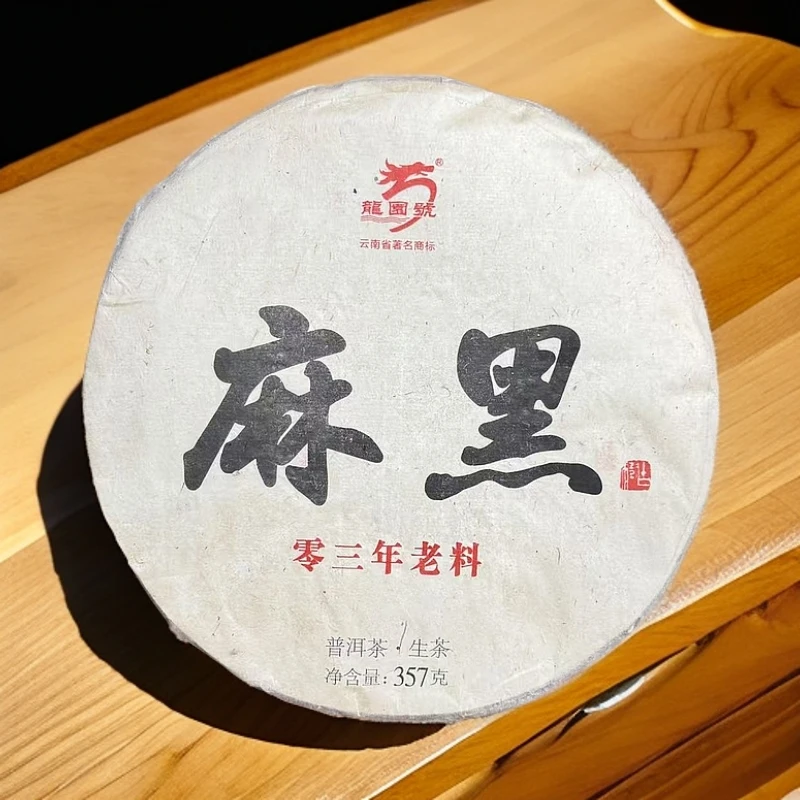 龍園號®
云南省著名商标
麻黑
零三年老料
普洱茶·生茶
净含量:357克